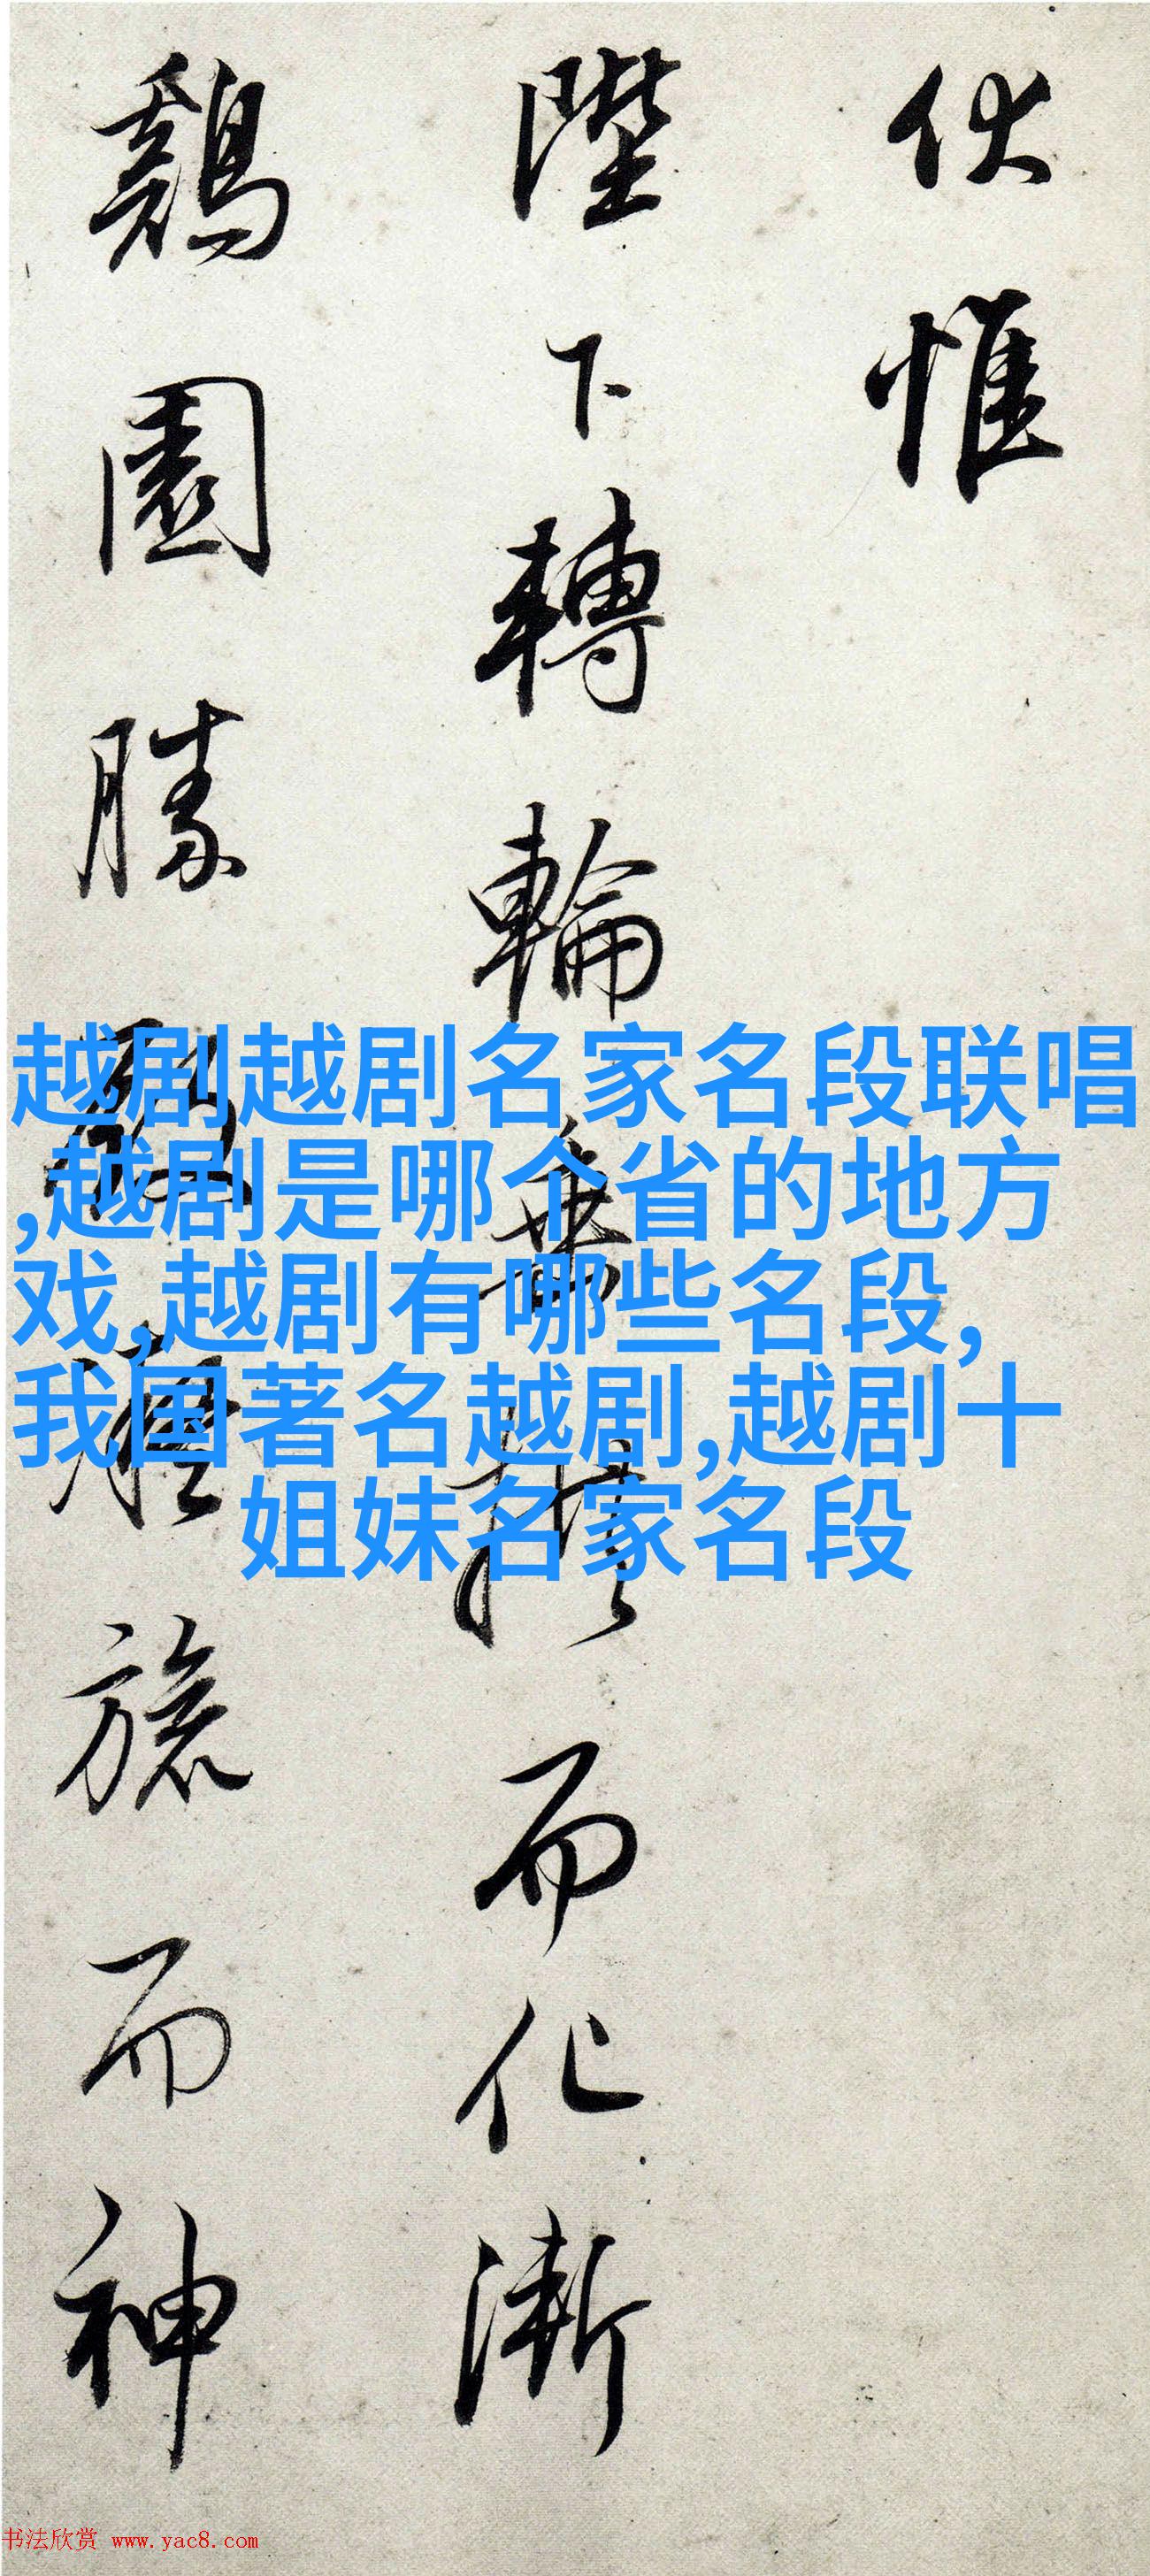 伏惟
陛下轉輪乘而化漸
鷄園勝殿旅而神
越剧越剧名家名段联唱
,越剧是哪个省的地方
戏,越剧有哪些名段,
我国著名越剧,越剧十
姐妹名家名段
书法欣赏 www.yac8.com